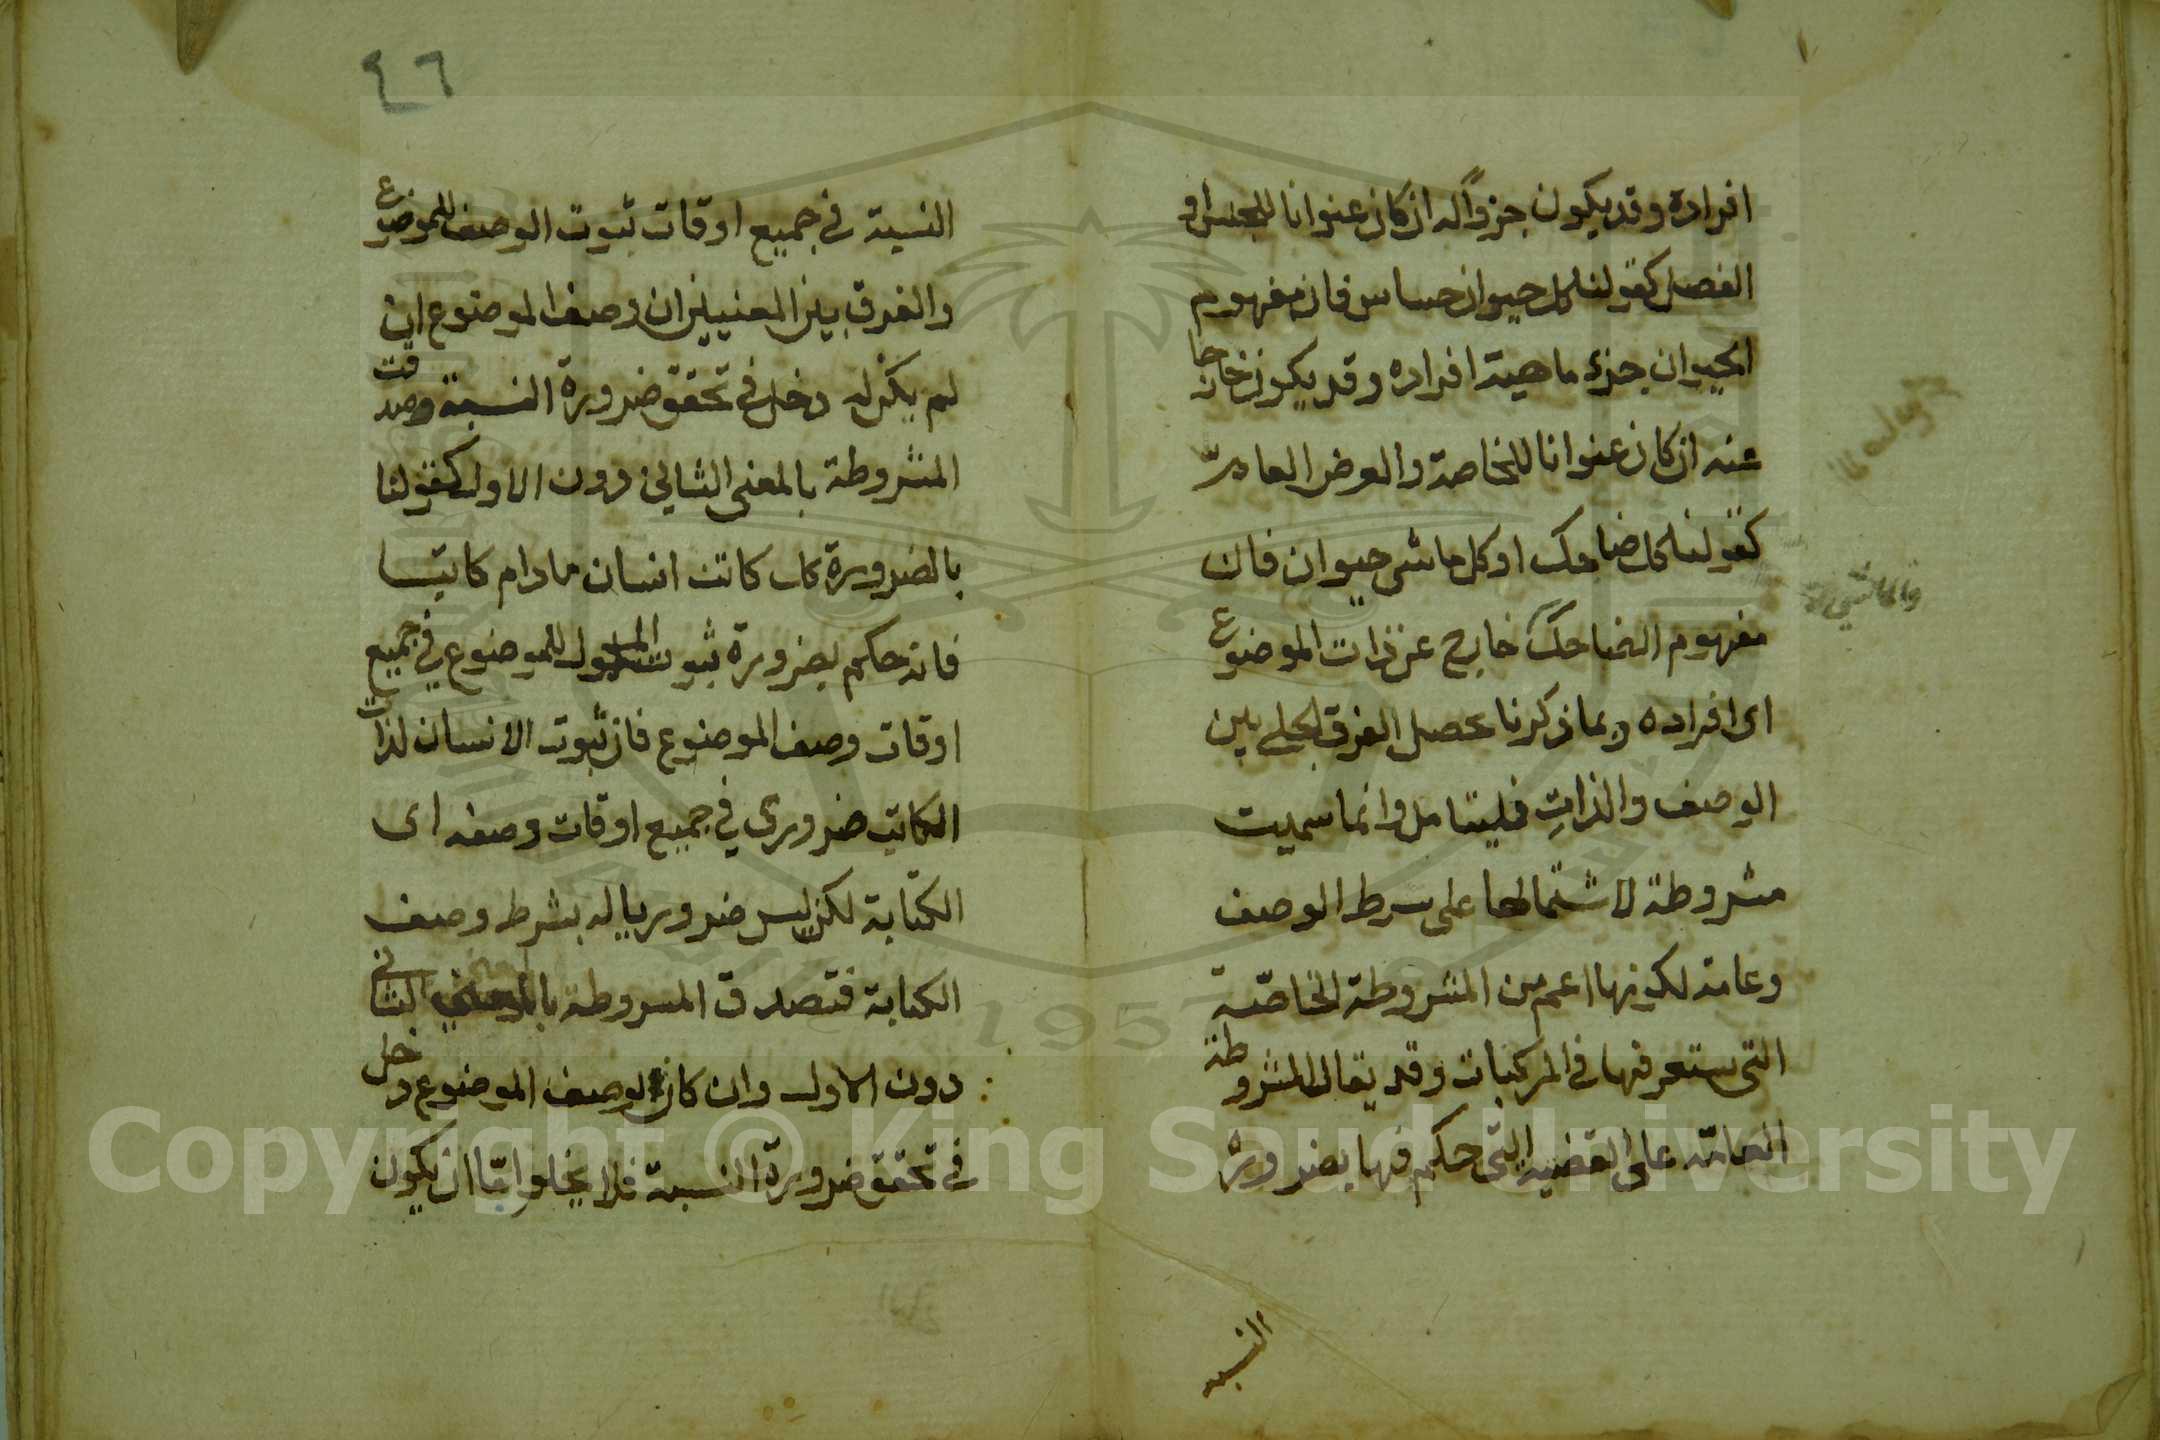 افراده وقد يكون جزوًا له ان كان عنوانا للجنس او
الفصل كقولنا كل حيوان حساس فان مفهوم
الحيوان جزء ماهية افراده وقد يكون خارجا
عنه ان كان عنوانا للخاصة والعرض العام
كقولنا كل ضاحك او كل ماشى حيوان فان
مفهوم الضاحك خارج عن ذات الموضوع
اى افراده وبما ذكرنا يحصل الفرق الجلي بين
الوصف والذاتِ فليتامل وانما سميت
مشروطة لاشتمالها على شرط الوصف
وعامة لكونها اعم من المشروطة الخاصّة
التى ستعرفها في المركبات وقد يقال المشروطة
العامّة على القضية التى حكم فيها بضرورة
النسبة
٤٦
النسبة في جميع اوقات ثبوت الوصف للموضوع
والفرق بين المعنيين ان وصف الموضوع ان
لم يكن له دخل في تحقق ضرورة النسبة وصدقت
المشروطة بالمعنى الثاني دون الاول كقولنا
بالضرورة كل كاتب انسان مادام كاتبا
فانه حكم بضرورة ثبوت المحمول للموضوع في جميع
اوقات وصف الموضوع فان ثبوت الانسان لذات
الكاتب ضرورى في جميع اوقات وصفه اى
الكتابة لكن ليس ضروريا له بشرط وصف
الكتابة فتصدق المشروطة بالمعنى الثاني
دون الاول وان كان لوصف الموضوع دخل
في تحقق ضرورة النسبة فلا يخلوا امّا ان يكون
Copyright © King Saud University
1957